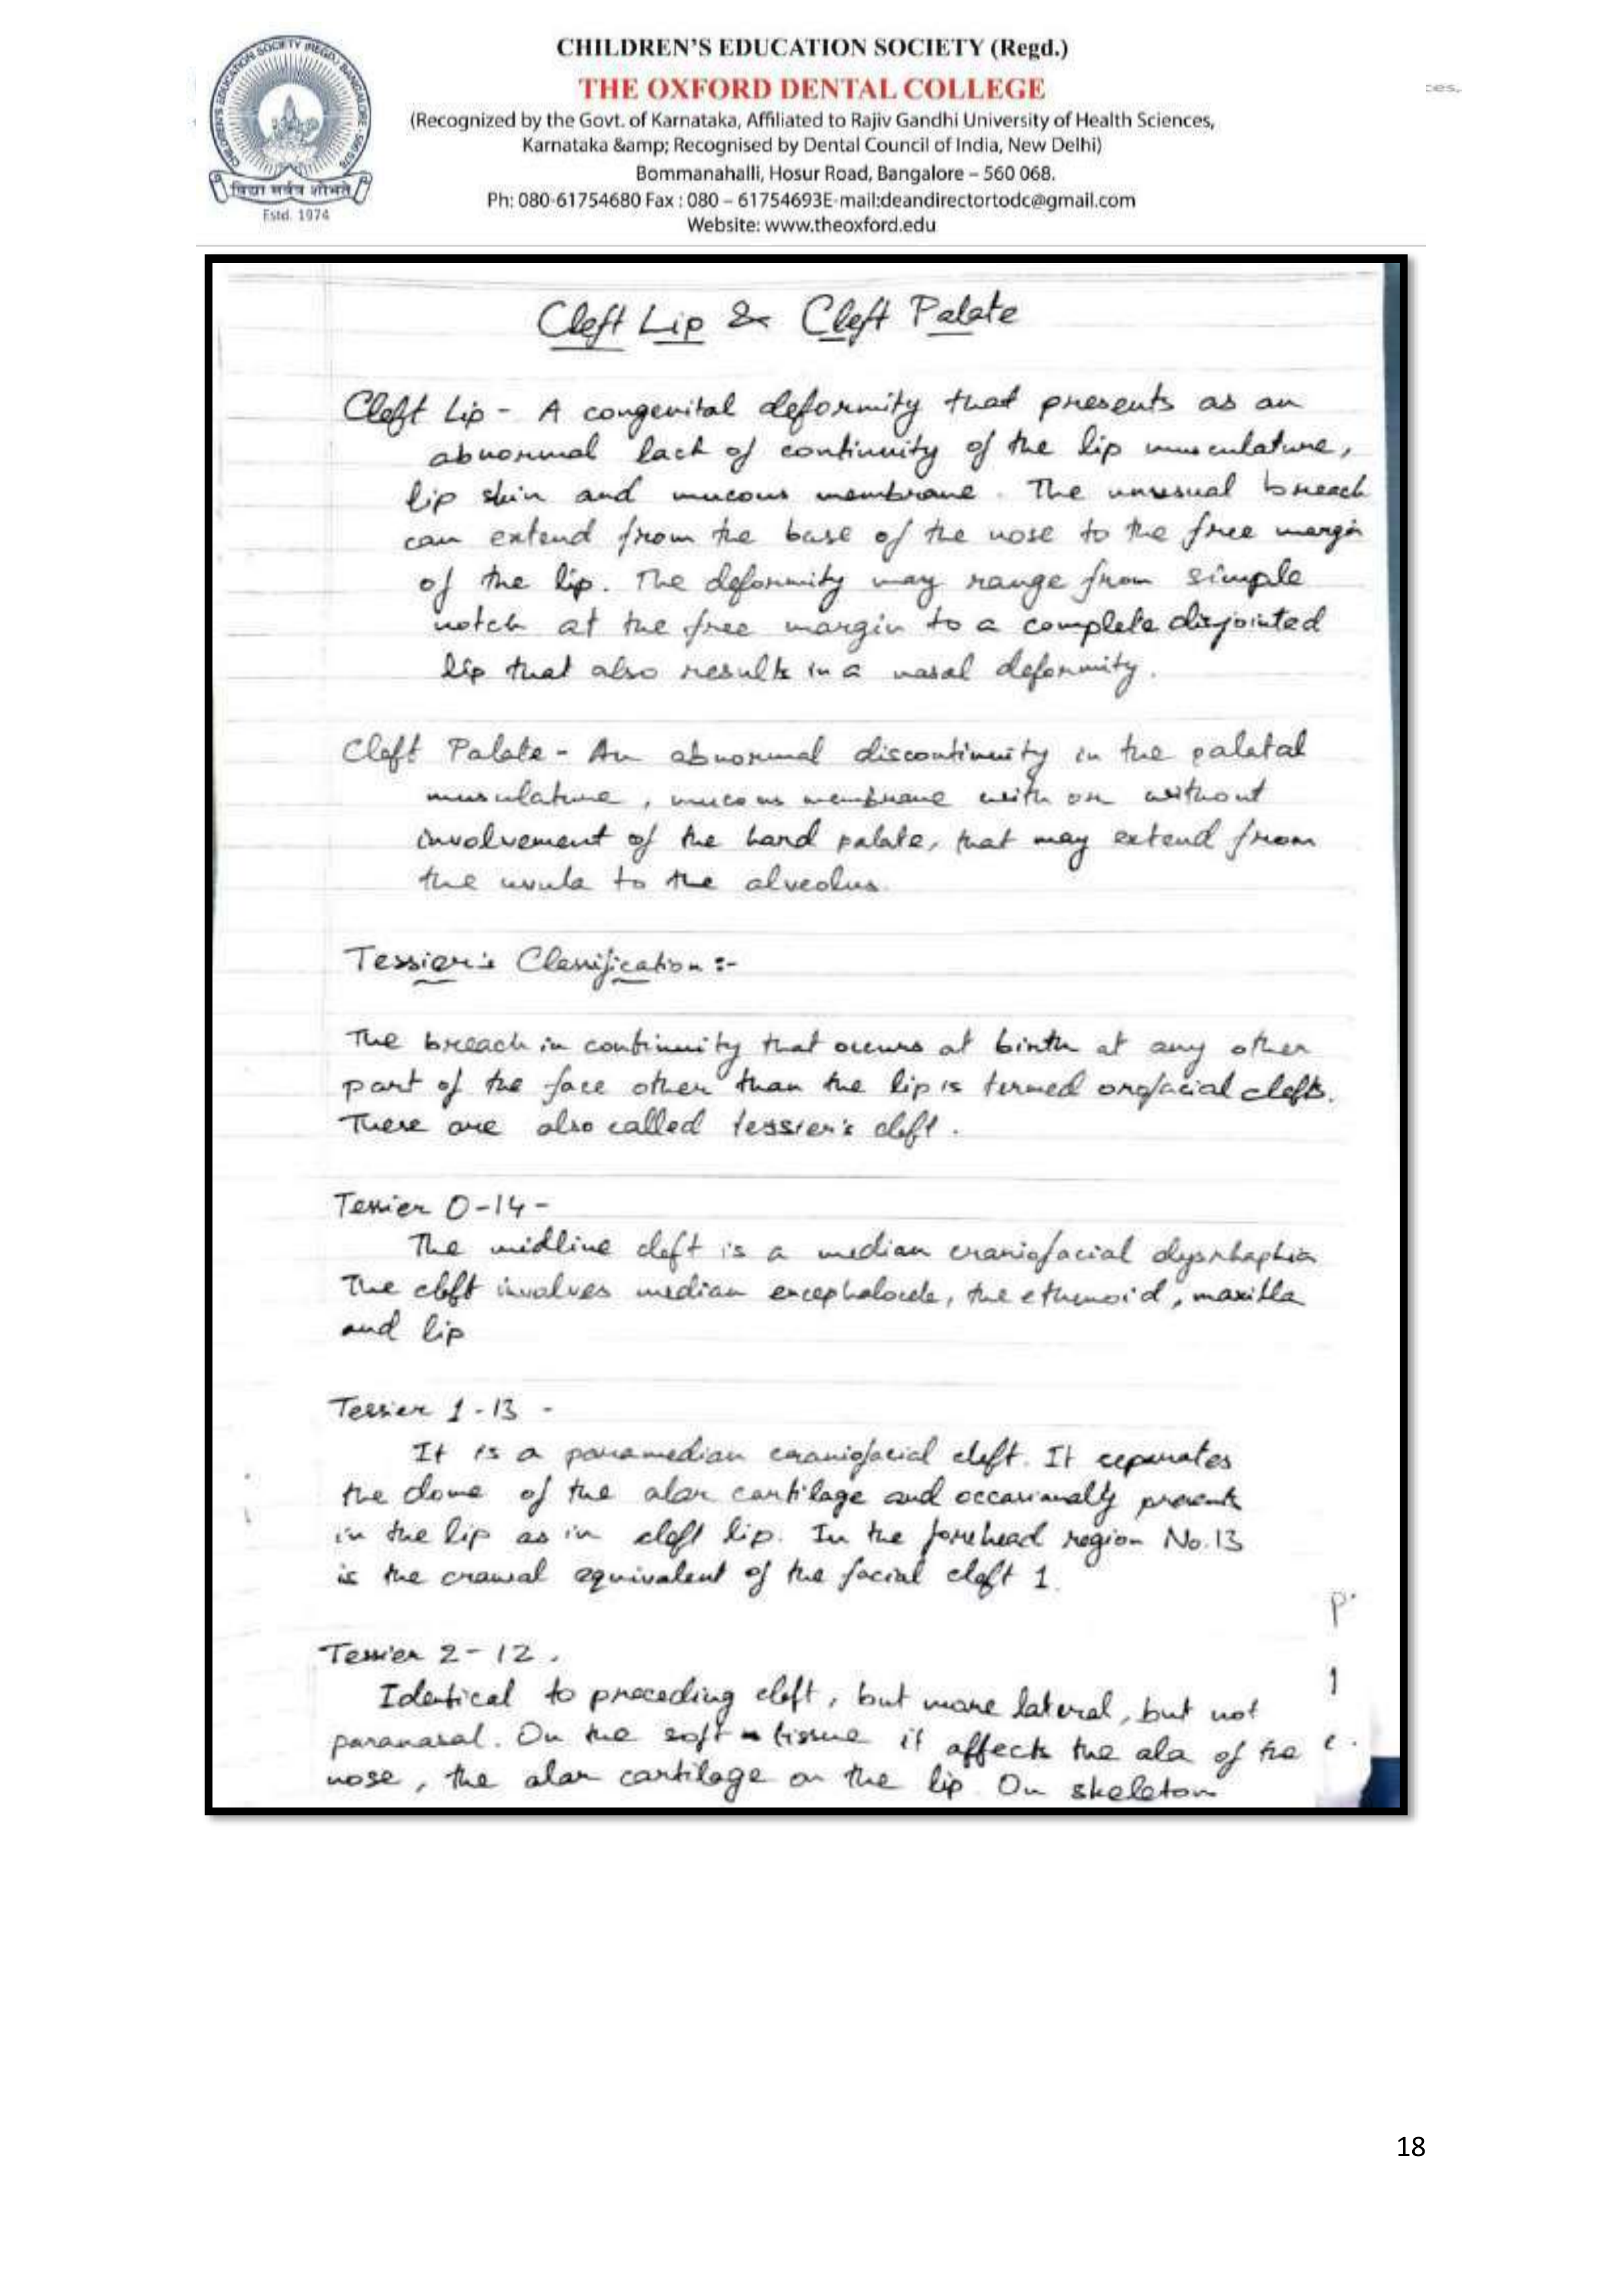 CHILDREN'S EDUCATION SOCIETY (REGD.) BANGALORE - 560 078
विद्या सर्वत्र शोभते
Estd. 1974
CHILDREN'S EDUCATION SOCIETY (Regd.)
THE OXFORD DENTAL COLLEGE
(Recognized by the Govt. of Karnataka, Affiliated to Rajiv Gandhi University of Health Sciences,
Karnataka &amp; Recognised by Dental Council of India, New Delhi)
Bommanahalli, Hosur Road, Bangalore – 560 068.
Ph: 080-61754680 Fax : 080 – 61754693E-mail:deandirectortodc@gmail.com
Website: www.theoxford.edu
ces,
Cleft Lip & Cleft Palate
Cleft Lip - A congenital deformity that presents as an
abnormal lack of continuity of the lip musculature,
lip skin and mucous membrane. The unusual breach
can extend from the base of the nose to the free margin
of the lip. The deformity may range from simple
notch at the free margin to a complete disjointed
lip that also results in a nasal deformity.
Cleft Palate - An abnormal discontinuity in the palatal
musculature, mucous membrane with or without
involvement of the hard palate, that may extend from
the uvula to the alveolus.
Tessier's Classification :-
The breach in continuity that occurs at birth at any other
part of the face other than the lip is termed orofacial clefts.
These are also called tessier's cleft.
Tessier 0-14 -
The midline cleft is a median craniofacial dysrhaphia
The cleft involves median encephalocele, the ethmoid, maxilla
and lip
Tessier 1-13 -
It is a paramedian craniofacial cleft. It seperates
the dome of the alar cartilage and occasionally presents
in the lip as in cleft lip. In the forehead region No.13
is the cranial equivalent of the facial cleft 1.
Tessier 2-12.
Identical to preceding cleft, but more lateral, but not
paranasal. On the soft tissue it affects the ala of the
nose, the alar cartilage or the lip. On skeleton
18